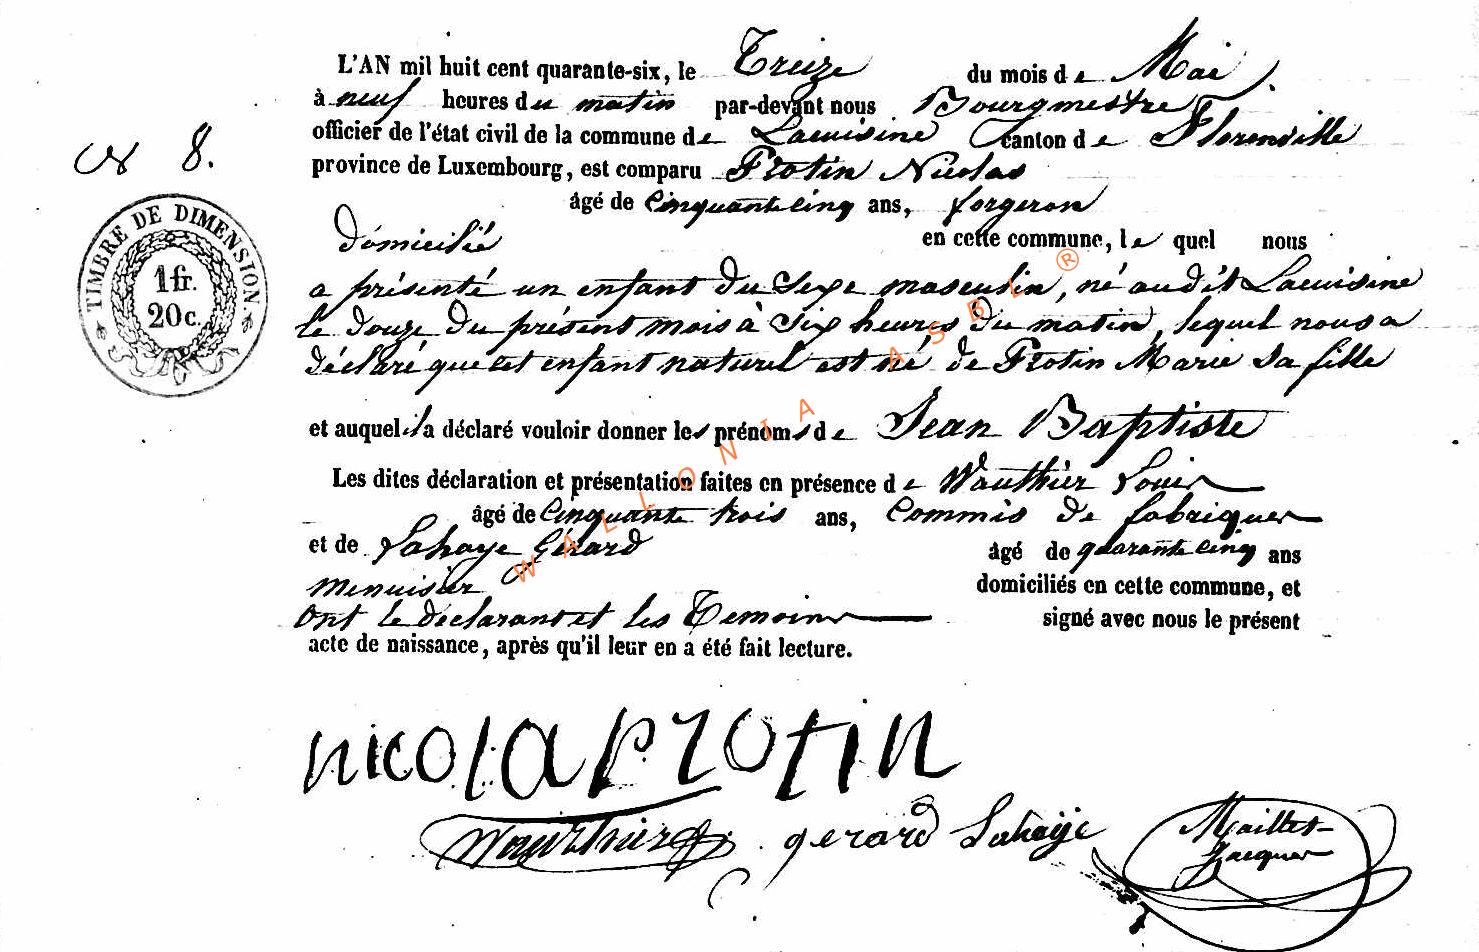 L'AN mil huit cent quarante-six, le Treize du mois de Mai
à neuf heures du matin par-devant nous Bourgmestre
officier de l'état civil de la commune de Lacuisine canton de Florenville
N° 8.
province de Luxembourg, est comparu Frotin Nicolas
âgé de Cinquante cinq ans, forgeron
Domicilié en cette commune, le quel nous
a présenté un enfant du Sexe masculin, né audit Lacuisine
le douze du présent mois à Six heures du matin, lequel nous a
déclaré que cet enfant naturel est né de Frotin Marie sa fille
et auquel il a déclaré vouloir donner les prénoms de Jean Baptiste
Les dites déclaration et présentation faites en présence de Wauthier Louis
âgé de Cinquante trois ans, Commis de fabriques
et de Lahaye Gérard âgé de quarante cinq ans
menuisier domiciliés en cette commune, et
Ont le déclarant et les Temoins signé avec nous le présent
acte de naissance, après qu'il leur en a été fait lecture.
TIMBRE DE DIMENSION
1 fr.
20 c.
WALLONIA ASBL ®
nicola Frotin
Wauthier gerard Lahaÿe Maillet
Jacques